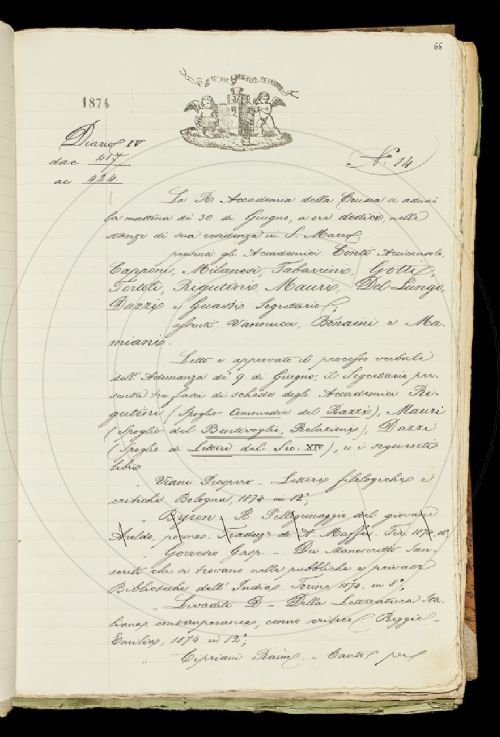 66
1874
Diario IV
dac 417
ac 424
N.o 14
La R. Accademia della Crusca si adunò
la mattina di 30 di Giugno, a ore dodici, nelle
stanze di sua residenza in S. Marco,
presenti gli Accademici Conti Arciconsolo,
Capponi, Milanesi, Tabarrini, Gotti,
Tortoli, Rigutini, Mauri, Del Lungo,
Dazzi e Guasti Segretario;
assenti Vannucci, Bonaini e Ma-
miani.
Letto e approvato il processo verbale
dell'Adunanza de' 9 di Giugno, il Segretario pre-
senta tre fasci di schede degli Accademici Ri-
gutini (Spoglio Commedie del Razzi), Mauri
(Spoglio del Bentivoglio, Relazioni), Dazzi
(Spoglio di Lettere del Sec. XIV), e i seguenti
libri
Viani Prospero - Lettere filologiche e
critiche. Bologna, 1874 in 12.o
Byron - Il Pellegrinaggio del giovane
Aroldo, poema. Traduz. di A. Maffei. Fir. 1874, 16.o
Gorresio Gasp. - Dei Manoscritti San-
scriti che si trovano nelle pubbliche e private
Biblioteche dell'India. Torino 1874, in 8.o,
" Livaditi D. - Della Letteratura Ita-
liana contemporanea, cenno critico. Reggio-
Emilia, 1874 in 12.o,
" Cipriani Raim. - Canti per